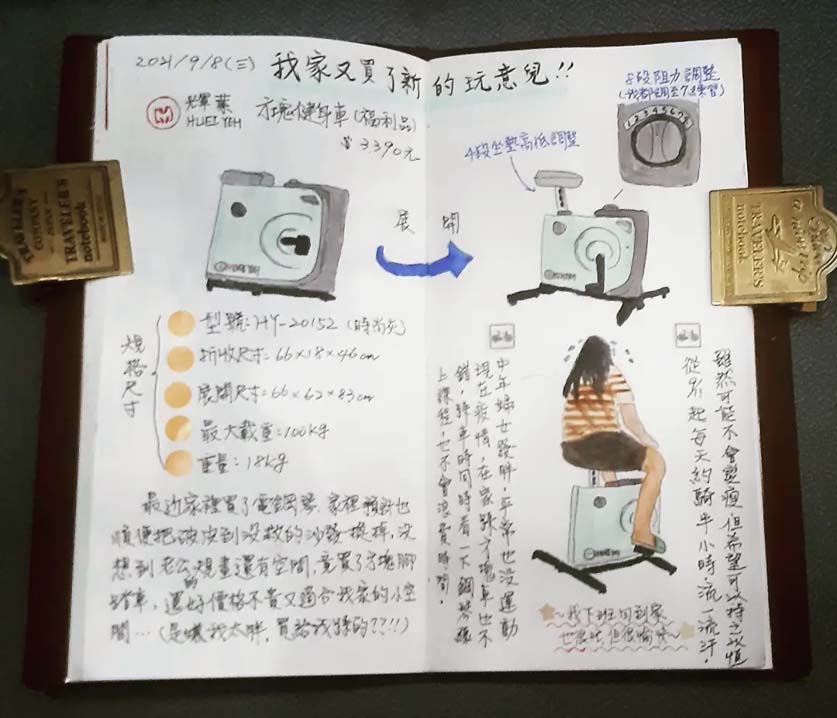 2021/9/8(三) 我家又買了新的玩意兒!!
輝葉
HUEI YEH
方塊健身車(福利品)
$3390元
8段阻力調整
(我都調至7來練習)
1 2 3 4 5 6 7 8
4段坐墊高低調整
展開
規格尺寸
型號:HY-20152 (時尚灰)
折收尺寸=66×18×46cm
展開尺寸=66×62×83cm
最大載重=100kg
重量:18kg
最近家裡買了電鋼琴、家裡預計也
順便把破皮到沒救的沙發換掉,沒
想到老公規畫還有空間,竟買了方塊腳
踏車,還好價格不貴又適合我家的小空
的
間…(是嫌我太胖,買給我踩的??!!)
中年婦女發胖,平常也沒運動
現在疫情,在家騎方塊車也不
錯,騎車時同時看一下鋼琴線
上課程,也不會浪費時間。
雖然可能不會變瘦但希望可以持之以恆
從9/1起每天約騎半小時,流一流汗。
~我下班回到家
也很忙,但很愉快~
TRAVELER'S
COMPANY
JAPAN
TRAVELER'S
notebook
TRAVELER'S
notebook